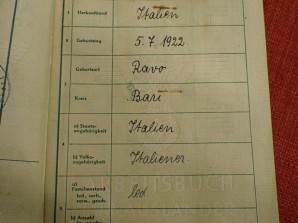 1 Herkunftsland Italien
2 Geburtstag 5.7.1922
Geburtsort Ravo
3 Kreis Bari
a) Staats-
angehörigkeit Italien
b) Volks-
zugehörigkeit Italiener
a)
Familienstand led
led., verh.,
verw., gesch.
b) Anzahl